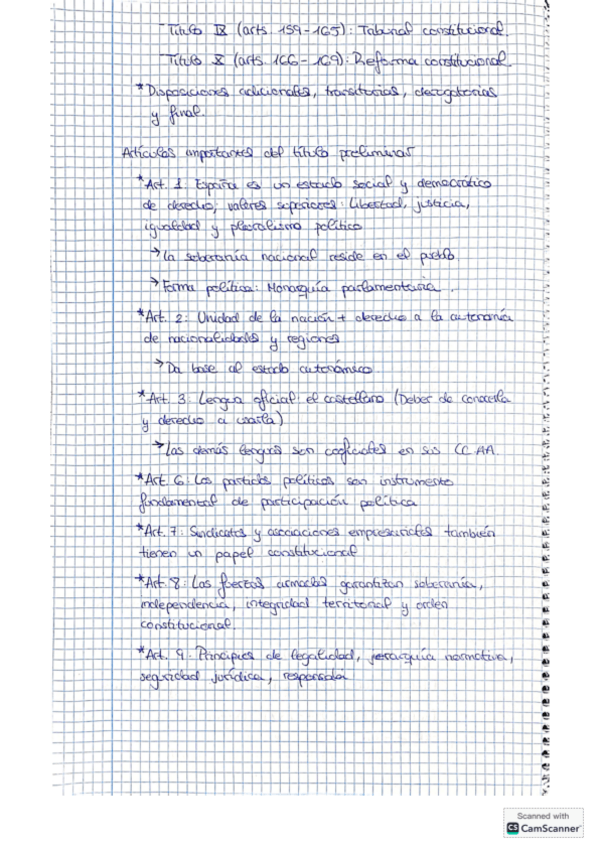 - Título IX (arts. 159-165): Tribunal constitucional.
- Título X (arts. 166-169): Reforma constitucional.
* Disposiciones adicionales, transitorias, derogatorias
y final.
Artículos importantes del título preliminar
* Art. 1: España es un estado social y democrático
de derecho; valores superiores: libertad, justicia,
igualdad y pluralismo político
→ La soberanía nacional reside en el pueblo.
→ Forma política: Monarquía parlamentaria.
* Art. 2: Unidad de la nación + derecho a la autonomía
de nacionalidades y regiones
→ Da base al estado autonómico.
* Art. 3: Lengua oficial: el castellano (Deber de conocerla
y derecho a usarla)
→ Las demás lenguas son cooficiales en sus CC.AA.
* Art. 6: Los partidos políticos son instrumento
fundamental de participación política
* Art. 7: Sindicatos y asociaciones empresariales también
tienen un papel constitucional
* Art. 8: Las fuerzas armadas garantizan soberanía,
independencia, integridad territorial y orden
constitucional.
* Art. 9: Principios de legalidad, jerarquía normativa,
seguridad jurídica,
Scanned with
CS CamScanner